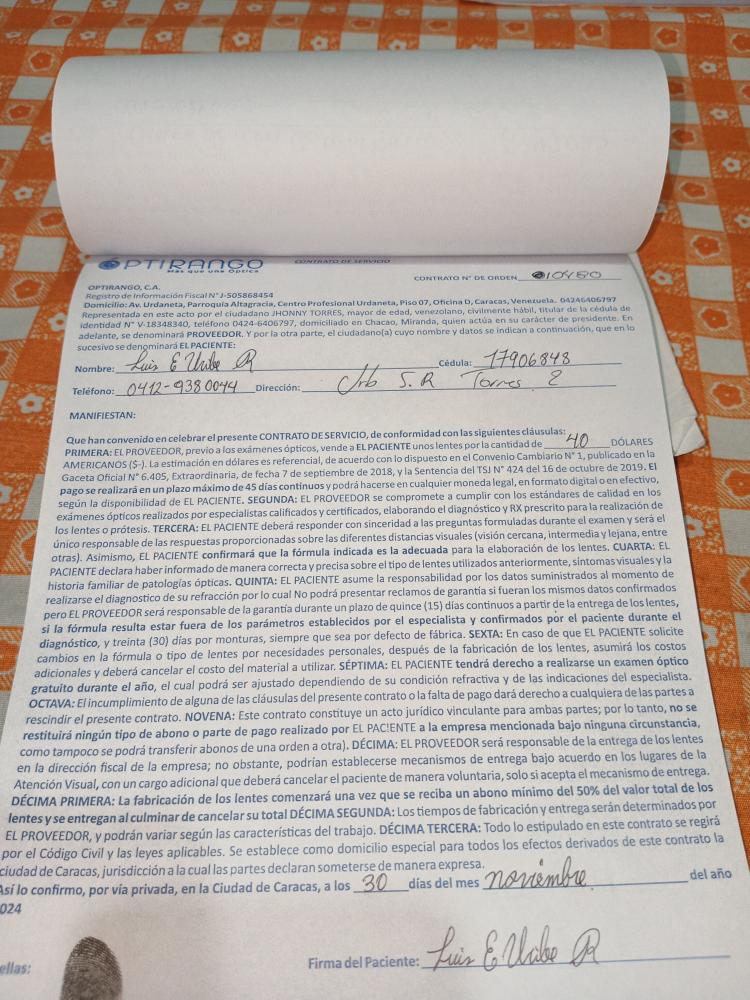 OPTIRANGO
Más que una Óptica
CONTRATO DE SERVICIO
CONTRATO N° DE ORDEN 010480
OPTIRANGO, C.A.
Registro de Información Fiscal N° J-505868454
Domicilio: Av. Urdaneta, Parroquia Altagracia, Centro Profesional Urdaneta, Piso 07, Oficina D, Caracas, Venezuela. 04246406797
Representada en este acto por el ciudadano JHONNY TORRES, mayor de edad, venezolano, civilmente hábil, titular de la cédula de
identidad N° V-18348340, teléfono 0424-6406797, domiciliado en Chacao, Miranda, quien actúa en su carácter de presidente. En
adelante, se denominará PROVEEDOR. Y por la otra parte, el ciudadano(a) cuyo nombre y datos se indican a continuación, que en lo
sucesivo se denominará EL PACIENTE:
Nombre: Luis E Uribe R Cédula: 17906848
Teléfono: 0412-9380044 Dirección: Urb S.R Torres 2
MANIFIESTAN:
Que han convenido en celebrar el presente CONTRATO DE SERVICIO, de conformidad con las siguientes cláusulas:
PRIMERA: EL PROVEEDOR, previo a los exámenes ópticos, vende a EL PACIENTE unos lentes por la cantidad de 40 DÓLARES
AMERICANOS ($-). La estimación en dólares es referencial, de acuerdo con lo dispuesto en el Convenio Cambiario N° 1, publicado en la
Gaceta Oficial N° 6.405, Extraordinaria, de fecha 7 de septiembre de 2018, y la Sentencia del TSJ N° 424 del 16 de octubre de 2019. El
pago se realizará en un plazo máximo de 45 días continuos y podrá hacerse en cualquier moneda legal, en formato digital o en efectivo,
según la disponibilidad de EL PACIENTE. SEGUNDA: EL PROVEEDOR se compromete a cumplir con los estándares de calidad en los
exámenes ópticos realizados por especialistas calificados y certificados, elaborando el diagnóstico y RX prescrito para la realización de
los lentes o prótesis. TERCERA: EL PACIENTE deberá responder con sinceridad a las preguntas formuladas durante el examen y será el
único responsable de las respuestas proporcionadas sobre las diferentes distancias visuales (visión cercana, intermedia y lejana, entre
otras). Asimismo, EL PACIENTE confirmará que la fórmula indicada es la adecuada para la elaboración de los lentes. CUARTA: EL
PACIENTE declara haber informado de manera correcta y precisa sobre el tipo de lentes utilizados anteriormente, síntomas visuales y la
historia familiar de patologías ópticas. QUINTA: EL PACIENTE asume la responsabilidad por los datos suministrados al momento de
realizarse el diagnostico de su refracción por lo cual No podrá presentar reclamos de garantía si fueran los mismos datos confirmados
pero EL PROVEEDOR será responsable de la garantía durante un plazo de quince (15) días continuos a partir de la entrega de los lentes,
si la fórmula resulta estar fuera de los parámetros establecidos por el especialista y confirmados por el paciente durante el
diagnóstico, y treinta (30) días por monturas, siempre que sea por defecto de fábrica. SEXTA: En caso de que EL PACIENTE solicite
cambios en la fórmula o tipo de lentes por necesidades personales, después de la fabricación de los lentes, asumirá los costos
adicionales y deberá cancelar el costo del material a utilizar. SÉPTIMA: EL PACIENTE tendrá derecho a realizarse un examen óptico
gratuito durante el año, el cual podrá ser ajustado dependiendo de su condición refractiva y de las indicaciones del especialista.
OCTAVA: El incumplimiento de alguna de las cláusulas del presente contrato o la falta de pago dará derecho a cualquiera de las partes a
rescindir el presente contrato. NOVENA: Este contrato constituye un acto jurídico vinculante para ambas partes; por lo tanto, no se
restituirá ningún tipo de abono o parte de pago realizado por EL PACIENTE a la empresa mencionada bajo ninguna circunstancia,
como tampoco se podrá transferir abonos de una orden a otra). DÉCIMA: EL PROVEEDOR será responsable de la entrega de los lentes
en la dirección fiscal de la empresa; no obstante, podrían establecerse mecanismos de entrega bajo acuerdo en los lugares de la
Atención Visual, con un cargo adicional que deberá cancelar el paciente de manera voluntaria, solo si acepta el mecanismo de entrega.
DÉCIMA PRIMERA: La fabricación de los lentes comenzará una vez que se reciba un abono mínimo del 50% del valor total de los
lentes y se entregan al culminar de cancelar su total DÉCIMA SEGUNDA: Los tiempos de fabricación y entrega serán determinados por
EL PROVEEDOR, y podrán variar según las características del trabajo. DÉCIMA TERCERA: Todo lo estipulado en este contrato se regirá
por el Código Civil y las leyes aplicables. Se establece como domicilio especial para todos los efectos derivados de este contrato la
ciudad de Caracas, jurisdicción a la cual las partes declaran someterse de manera expresa.
Así lo confirmo, por vía privada, en la Ciudad de Caracas, a los 30 días del mes noviembre del año
024
ellas:
Firma del Paciente: Luis E Uribe R